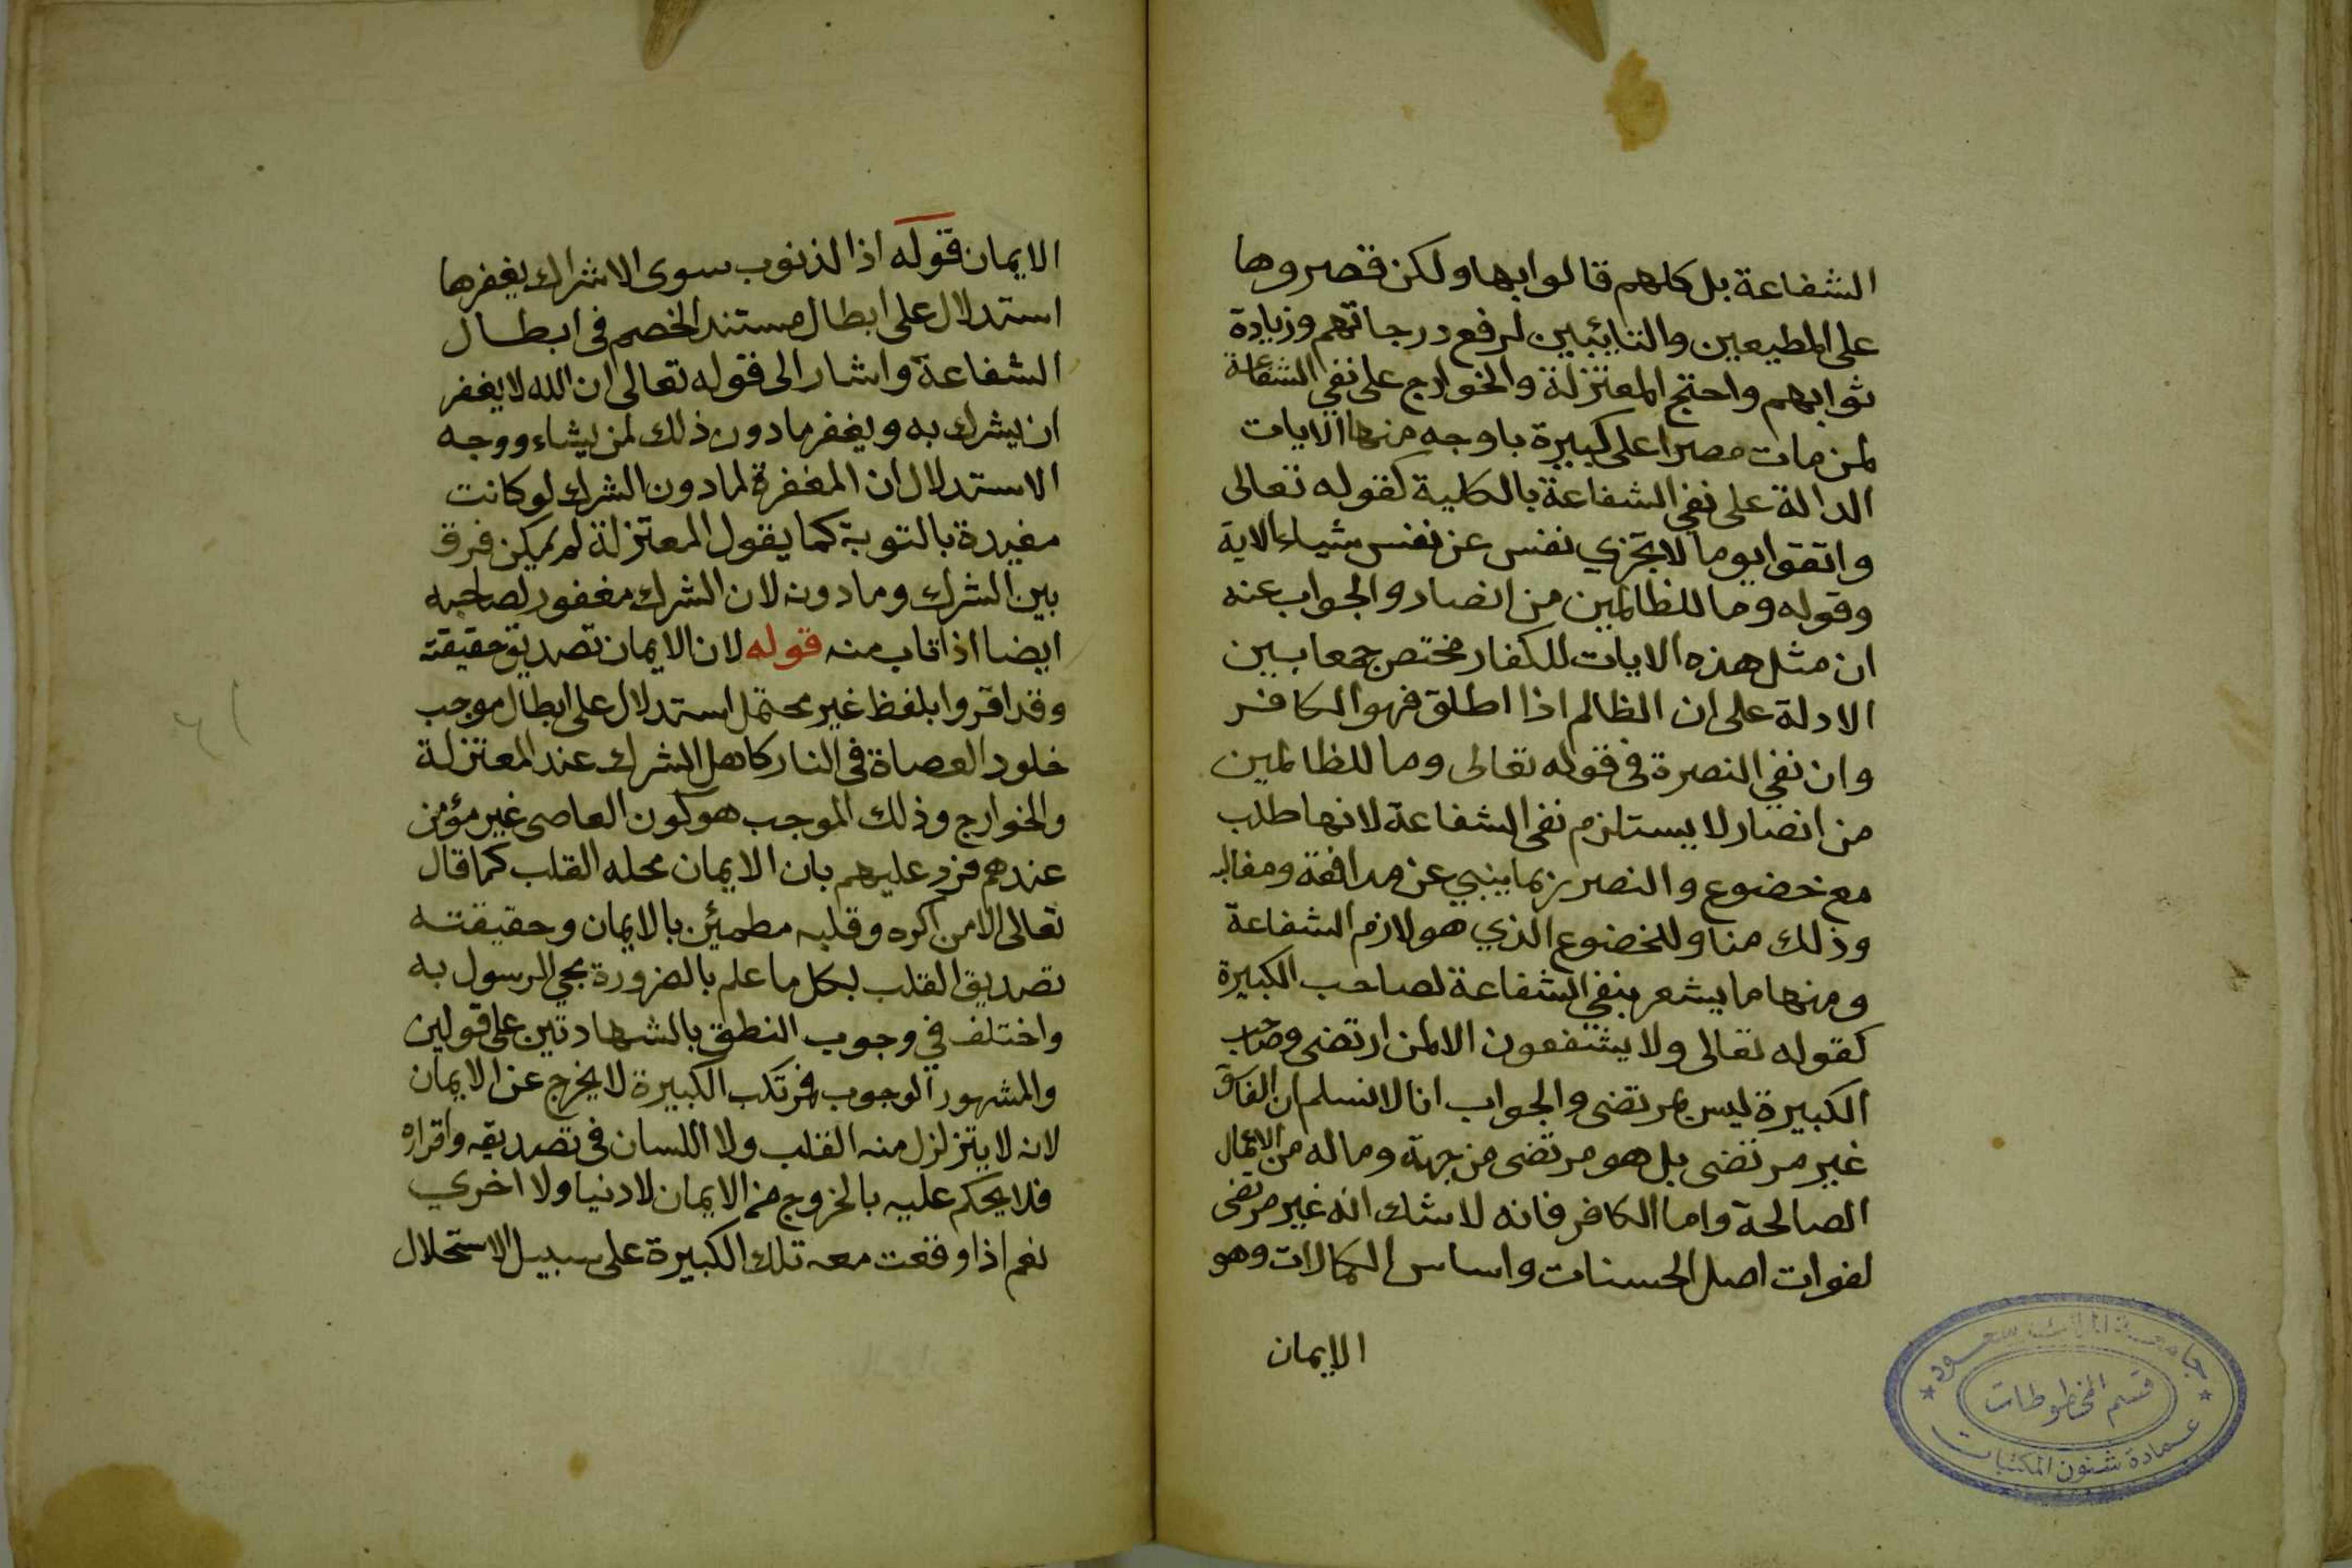 الشفاعة بل كلهم قالوا بها ولكن قصروها
على المطيعين والتائبين لرفع درجاتهم وزيادة
ثوابهم واحتج المعتزلة والخوارج على نفي الشفاعة
لمن مات مصرا على كبيرة باوجه منها الايات
الدالة على نفي الشفاعة بالكلية كقوله تعالى
واتقوا يوما لا تجزي نفس عن نفس شياء الاية
وقوله وما للظالمين من انصار والجواب عنه
ان مثل هذه الايات للكفار مختص جمعا بين
الادلة على ان الظالم اذا اطلق فهو الكافر
وان نفي النصرة في قوله تعالى وما للظالمين
من انصار لا يستلزم نفى الشفاعة لانها طلب
مع خضوع والنصر ربما ينبي عن مدافعة ومغالبه
وذلك مناو للخضوع الذي هو لازم الشفاعة
ومنها ما يشعر بنفي الشفاعة لصاحب الكبيرة
كقوله تعالى ولا يشفعون الا لمن ارتضى وصاحب
الكبيرة ليس بمرتضى والجواب انا لا نسلم ان الفاسق
غير مرتضى بل هو مرتضى من جهة وماله من الاعمال
الصالحة واما الكافر فانه لا شك انه غير مرتضى
لفوات اصل الحسنات واساس الكمالات وهو
الايمان
جامعة الملك سعود
قسم المخطوطات
عمادة شئون المكتبات
الايمان قوله اذا الذنوب سوى الاشراك يغفرها
استدلال على ابطال مستند الخصم فى ابطال
الشفاعة واشار الى قوله تعالى ان الله لا يغفر
ان يشرك به ويغفر ما دون ذلك لمن يشاء ووجه
الاستدلال ان المغفرة لما دون الشرك لو كانت
مقيدة بالتوبة كما يقول المعتزلة لم يمكن فرق
بين الشرك وما دونه لان الشرك مغفور لصاحبه
ايضا اذا تاب منه قوله لان الايمان تصديق حقيقته
وقد اقروا بلفظ غير محتمل استدلال على ابطال موجب
خلود العصاة فى النار كاهل الشرك عند المعتزلة
والخوارج وذلك الموجب هو كون العاصى غير مؤمن
عندهم فرد عليهم بان الايمان محله القلب كما قال
تعالى الا من اكره وقلبه مطمئن بالايمان وحقيقته
تصديق القلب لكل ما علم بالضرورة مجي الرسول به
واختلف في وجوب النطق بالشهادتين على قولين
والمشهور الوجوب فمرتكب الكبيرة لا يخرج عن الايمان
لانه لا يتزلزل منه القلب ولا اللسان فى تصديقه واقراره
فلا يحكم عليه بالخروج من الايمان لا دنيا ولا اخرى
نعم اذا وقعت معه تلك الكبيرة على سبيل الاستحلال